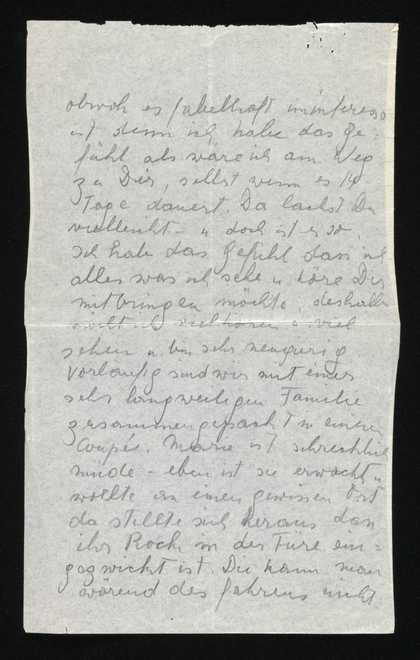 obwoh es fabelhaft uninteress
ist denn ich habe das ge=
fühl als wäre ich am Weg
zu Dir, selbst wenn es 14
Tage dauert. Da lachst Du
vielleicht - u doch ist es so.
Ich habe das Gefühl dass ich
alles was ich sehe u höre Dir
mitbringen möchte, deshalb
viel hören u viel
sehen u bin sehr neugierig
Vorläufig sind wir mit einer
sehr langweiligen Familie
zusammengepackt in einem
Coupée. Marie ist schrecklich
müde - eben ist sie erwacht u
wollte an einen gewissen Ort
da stellte sich heraus dass
ihr Rock in der Türe ein=
gezwickt ist. Die kann man
wärend des fahrens nicht